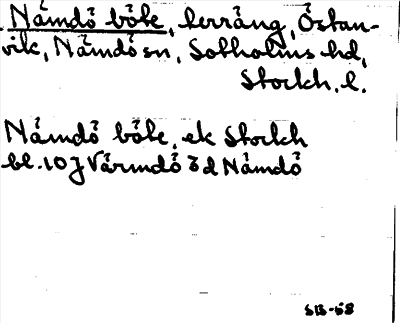 Nämdö böte, terräng, Östan-
vik, Nämdö sn, Sotholms hd,
Stockh. l.
Nämdö böte, ek Stockh
bl. 10J Värmdö öd Nämdö
SB-58